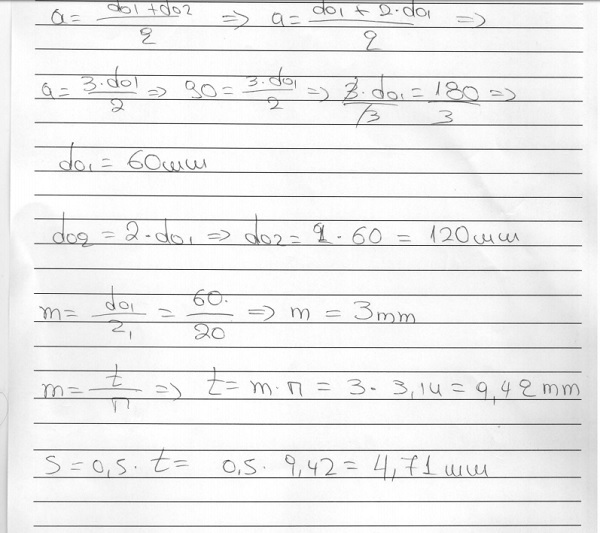 a = (do1 + do2)/2 => a = (do1 + 2·do1)/2 =>
a = 3·do1/2 => 90 = 3·do1/2 => 3·do1/3 = 180/3 =>
do1 = 60mm
do2 = 2·do1 => do2 = 2·60 = 120mm
m = do1/z1 = 60/20 => m = 3mm
m = t/π => t = m·π = 3·3,14 = 9,42mm
S = 0,5·t = 0,5·9,42 = 4,71mm